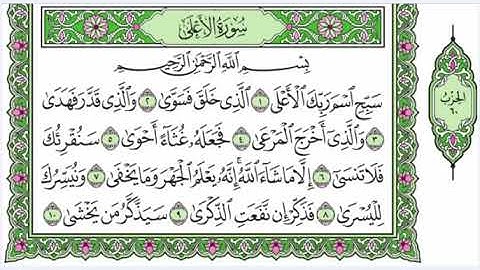 سُورَةُ الأَعْلَى
بِسْمِ اللَّهِ الرَّحْمَٰنِ الرَّحِيمِ
سَبِّحِ اسْمَ رَبِّكَ الْأَعْلَى ١ الَّذِي خَلَقَ فَسَوَّىٰ ٢ وَالَّذِي قَدَّرَ فَهَدَىٰ
٣ وَالَّذِي أَخْرَجَ الْمَرْعَىٰ ٤ فَجَعَلَهُ غُثَاءً أَحْوَىٰ ٥ سَنُقْرِئُكَ
فَلَا تَنسَىٰ ٦ إِلَّا مَا شَاءَ اللَّهُ إِنَّهُ يَعْلَمُ الْجَهْرَ وَمَا يَخْفَىٰ ٧ وَنُيَسِّرُكَ
لِلْيُسْرَىٰ ٨ فَذَكِّرْ إِن نَّفَعَتِ الذِّكْرَىٰ ٩ سَيَذَّكَّرُ مَن يَخْشَىٰ ١٠
الحِزْب
٦٠